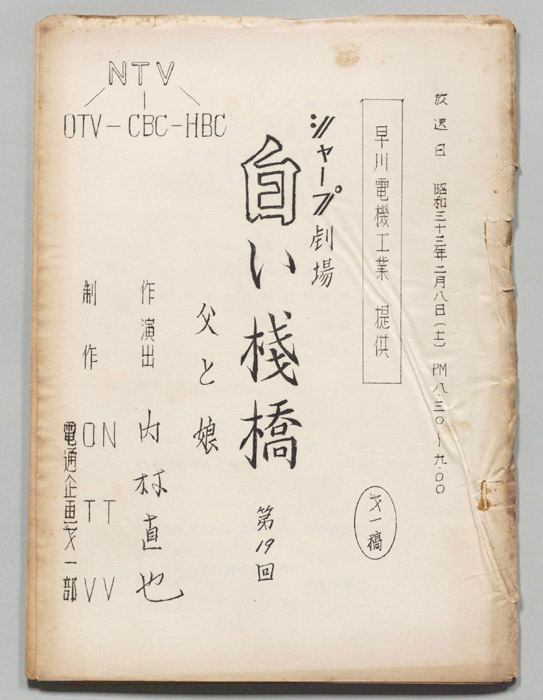 放送日 昭和三十三年二月八日(土) PM八.三〇~九.〇〇
早川電機工業 提供
才一稿
シャープ劇場
白い桟橋 第19回
父と娘
作演出 内村直也
制作 NTV
OTV
電通企画才一部
NTV
OTV-CBC-HBC